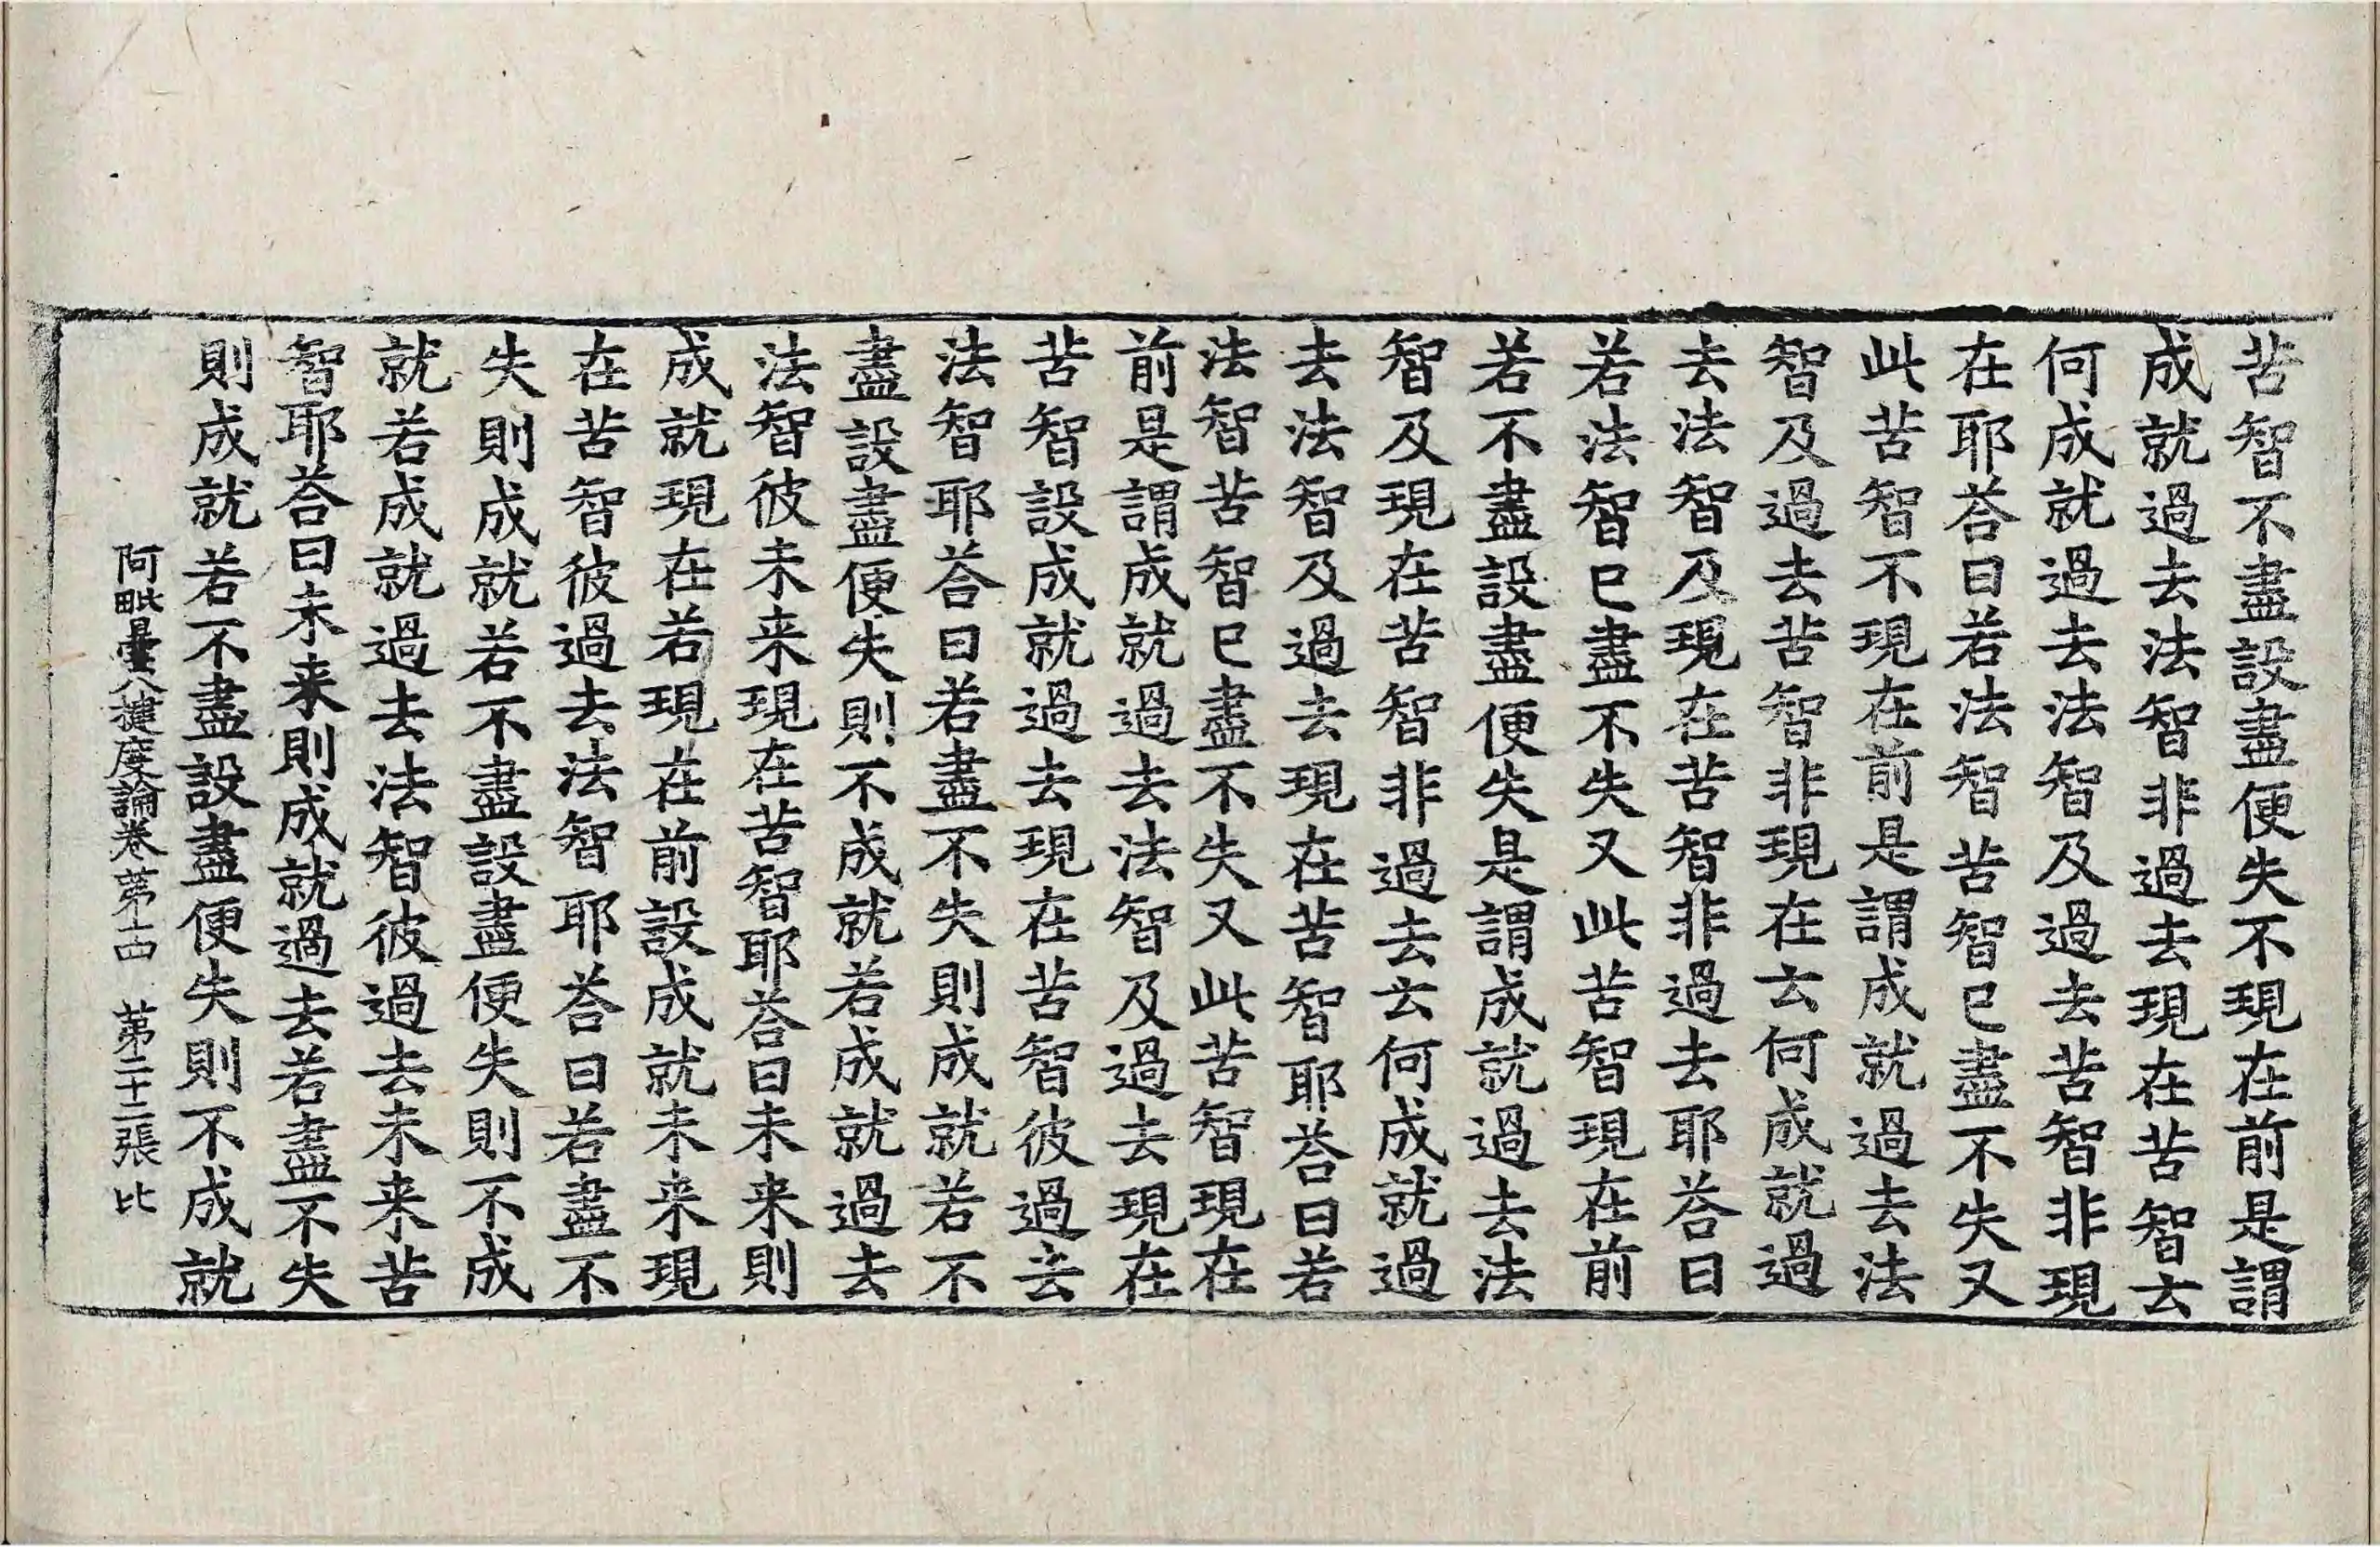 苦智不盡設盡便失不現在前是謂
成就過去法智非過去現在苦智云
何成就過去法智及過去苦智非現
在耶荅曰若法智苦智已盡不失又
此苦智不現在前是謂成就過去法
智及過去苦智非現在云何成就過
去法智及現在苦智非過去耶荅曰
若法智已盡不失又此苦智現在前
若不盡設盡便失是謂成就過去法
智及現在苦智非過去云何成就過
去法智及過去現在苦智耶荅曰若
法智苦智已盡不失又此苦智現在
前是謂成就過去法智及過去現在
苦智設成就過去現在苦智彼過去
法智耶荅曰若盡不失則成就若不
盡設盡便失則不成就若成就過去
法智彼未来現在苦智耶荅曰未来則
成就現在若現在前設成就未来現
在苦智彼過去法智耶荅曰若盡不
失則成就若不盡設盡便失則不成
就若成就過去法智彼過去未来苦
智耶荅曰未来則成就過去若盡不失
則成就若不盡設盡便失則不成就
阿毗曇八揵度論卷第十四 第二十二張 比